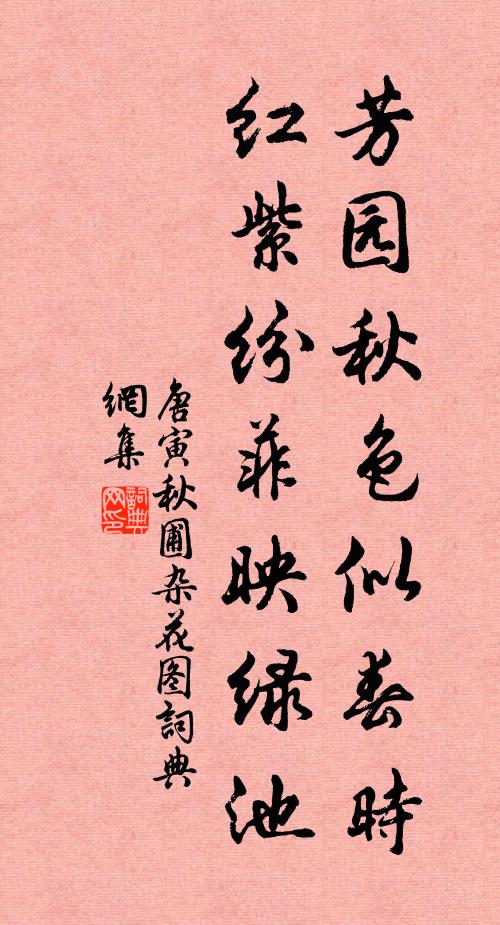 芳园秋色似春時
红紫纷菲映绿池
唐寅秋圃杂花图詞典
網集
詞典
网印